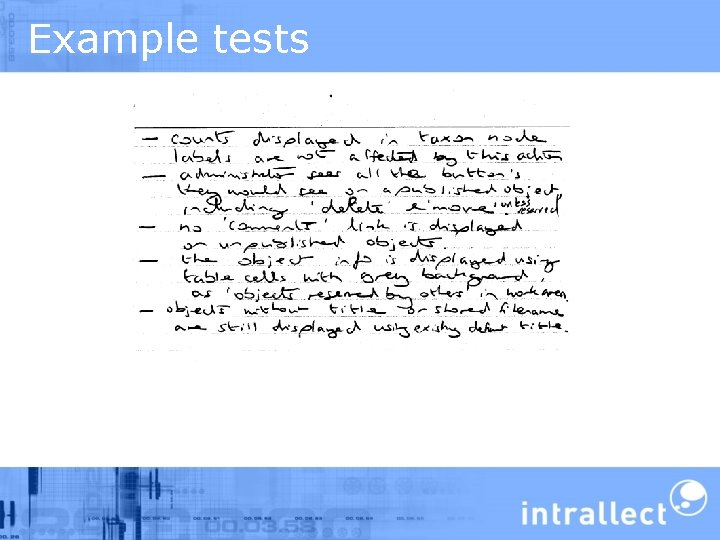 Example tests
- counts displayed in taxon node
labels are not affected by this action
- administrator sees all the button's
they would see on a published object,
including 'delete' & 'move' unless reserved
- no 'comments' link is displayed
on unpublished objects.
- the object info is displayed using
table cells with grey background,
as 'objects reserved by others' in work area.
- objects without title or stored filename
are still displayed using existing default title.
intrallect